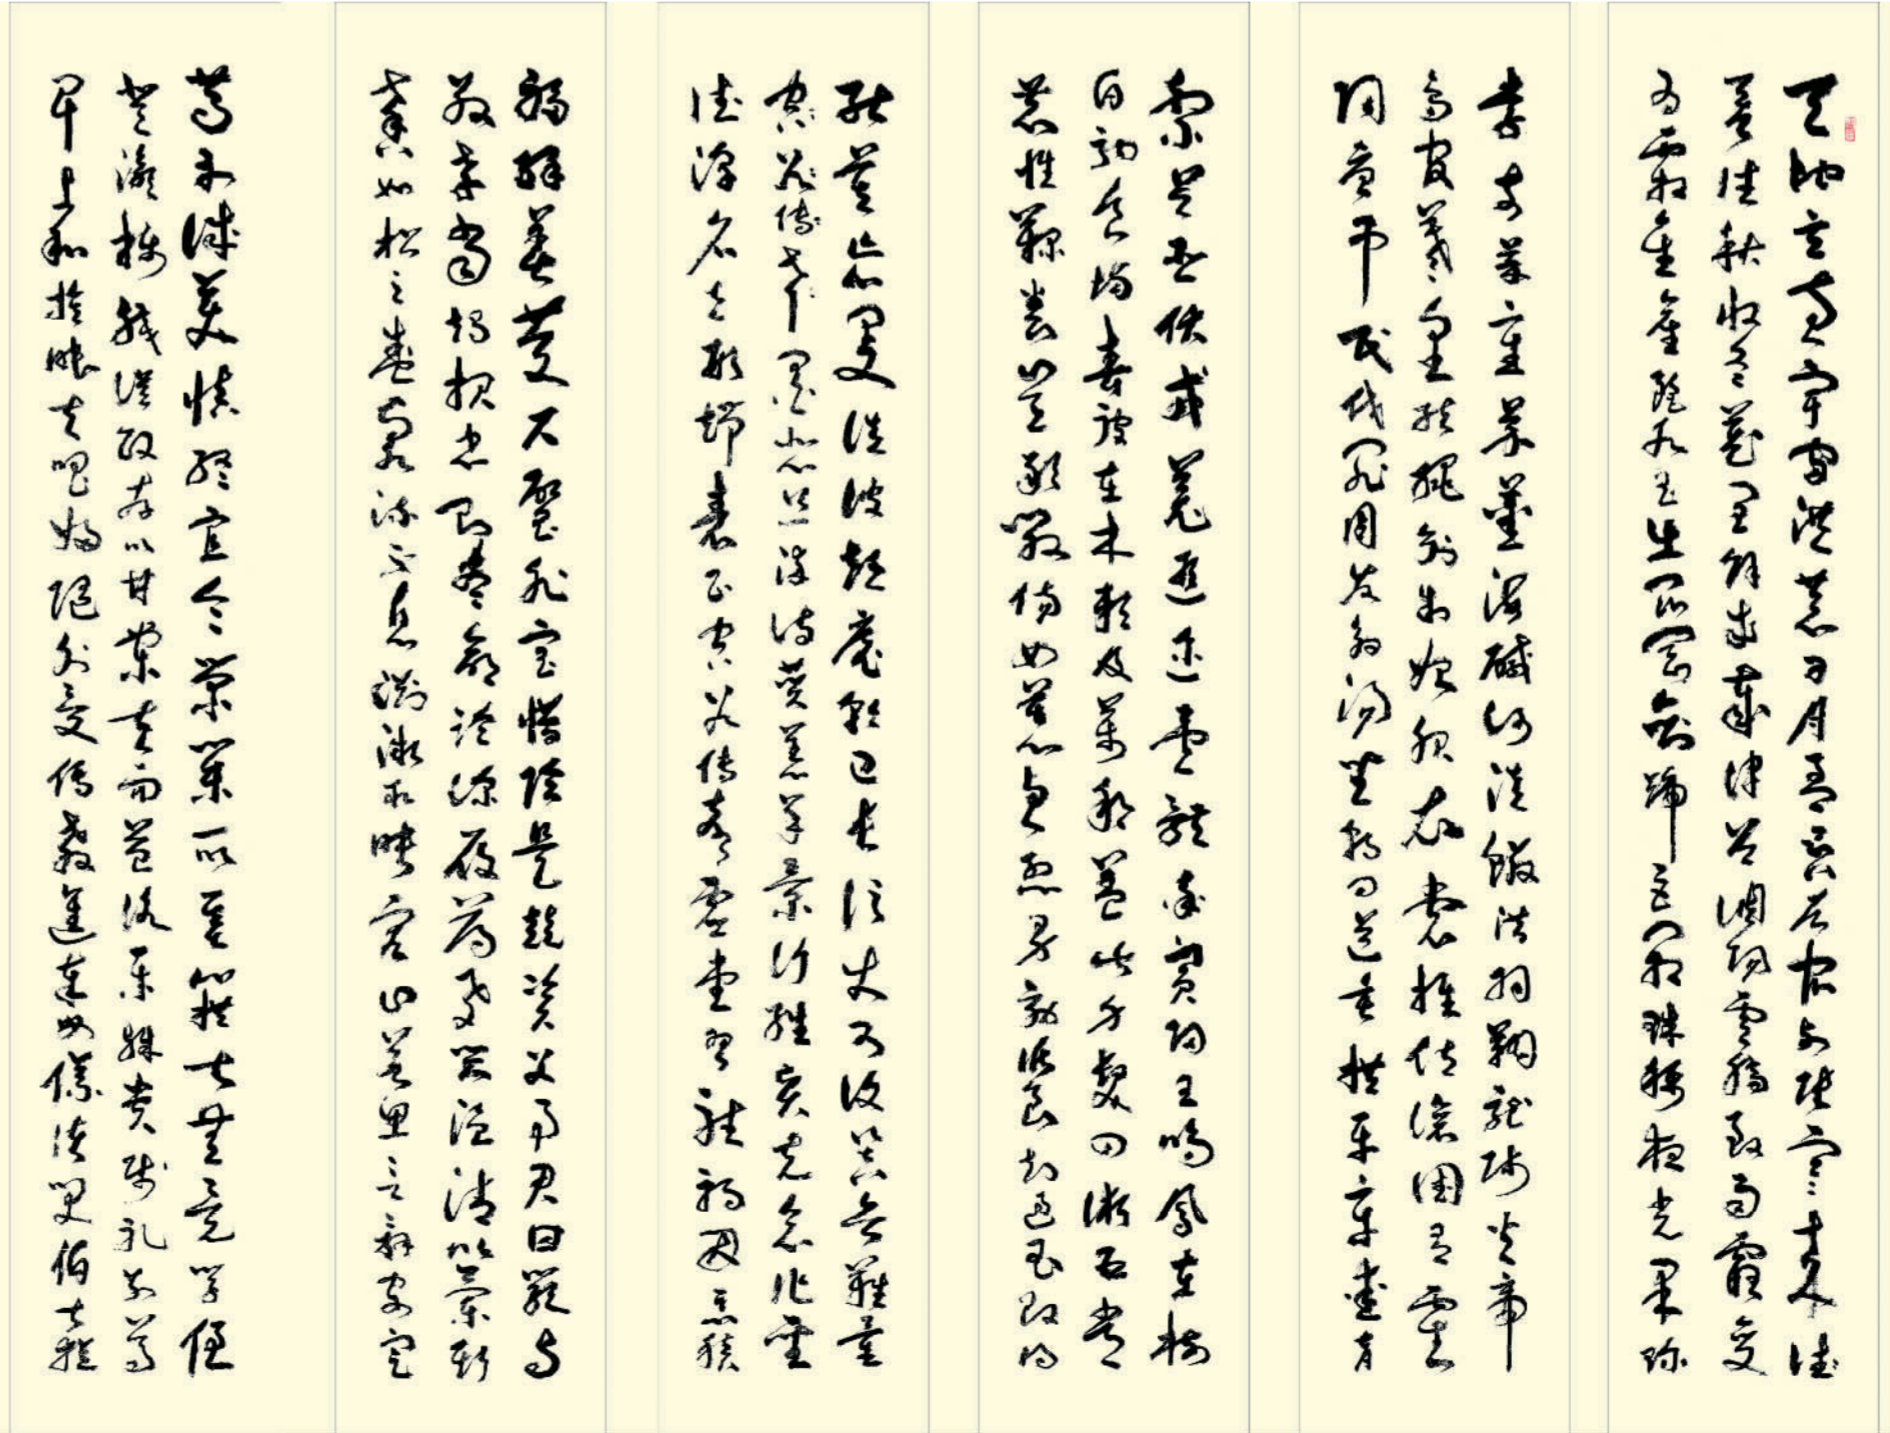 天地玄黃宇宙洪荒日月盈昃辰宿列張寒來暑往
秋收冬藏閏餘成歲律呂調陽雲騰致雨露結
為霜金生麗水玉出崑岡劍號巨闕珠稱夜光果珍
李柰菜重芥薑海鹹河淡鱗潛羽翔龍師火帝
鳥官人皇始制文字乃服衣裳推位讓國有虞
陶唐弔民伐罪周發殷湯坐朝問道垂拱平章愛育
黎首臣伏戎羌遐邇壹體率賓歸王鳴鳳在樹
白駒食場化被草木賴及萬方蓋此身髮四大五常
恭惟鞠養豈敢毀傷女慕貞烈男效才良知過必改得
能莫忘罔談彼短靡恃己長信使可覆器欲難量
墨悲絲染詩讚羔羊景行維賢克念作聖
德建名立形端表正空谷傳聲虛堂習聽禍因惡積
福緣善慶尺璧非寶寸陰是競資父事君曰嚴與
敬孝當竭力忠則盡命臨深履薄夙興溫凊似蘭斯
馨如松之盛川流不息淵澄取映容止若思言辭安定
篤初誠美慎終宜令榮業所基籍甚無竟學優
登仕攝職從政存以甘棠去而益詠樂殊貴賤禮別尊
卑上和下睦夫唱婦隨外受傅訓入奉母儀諸姑伯叔猶